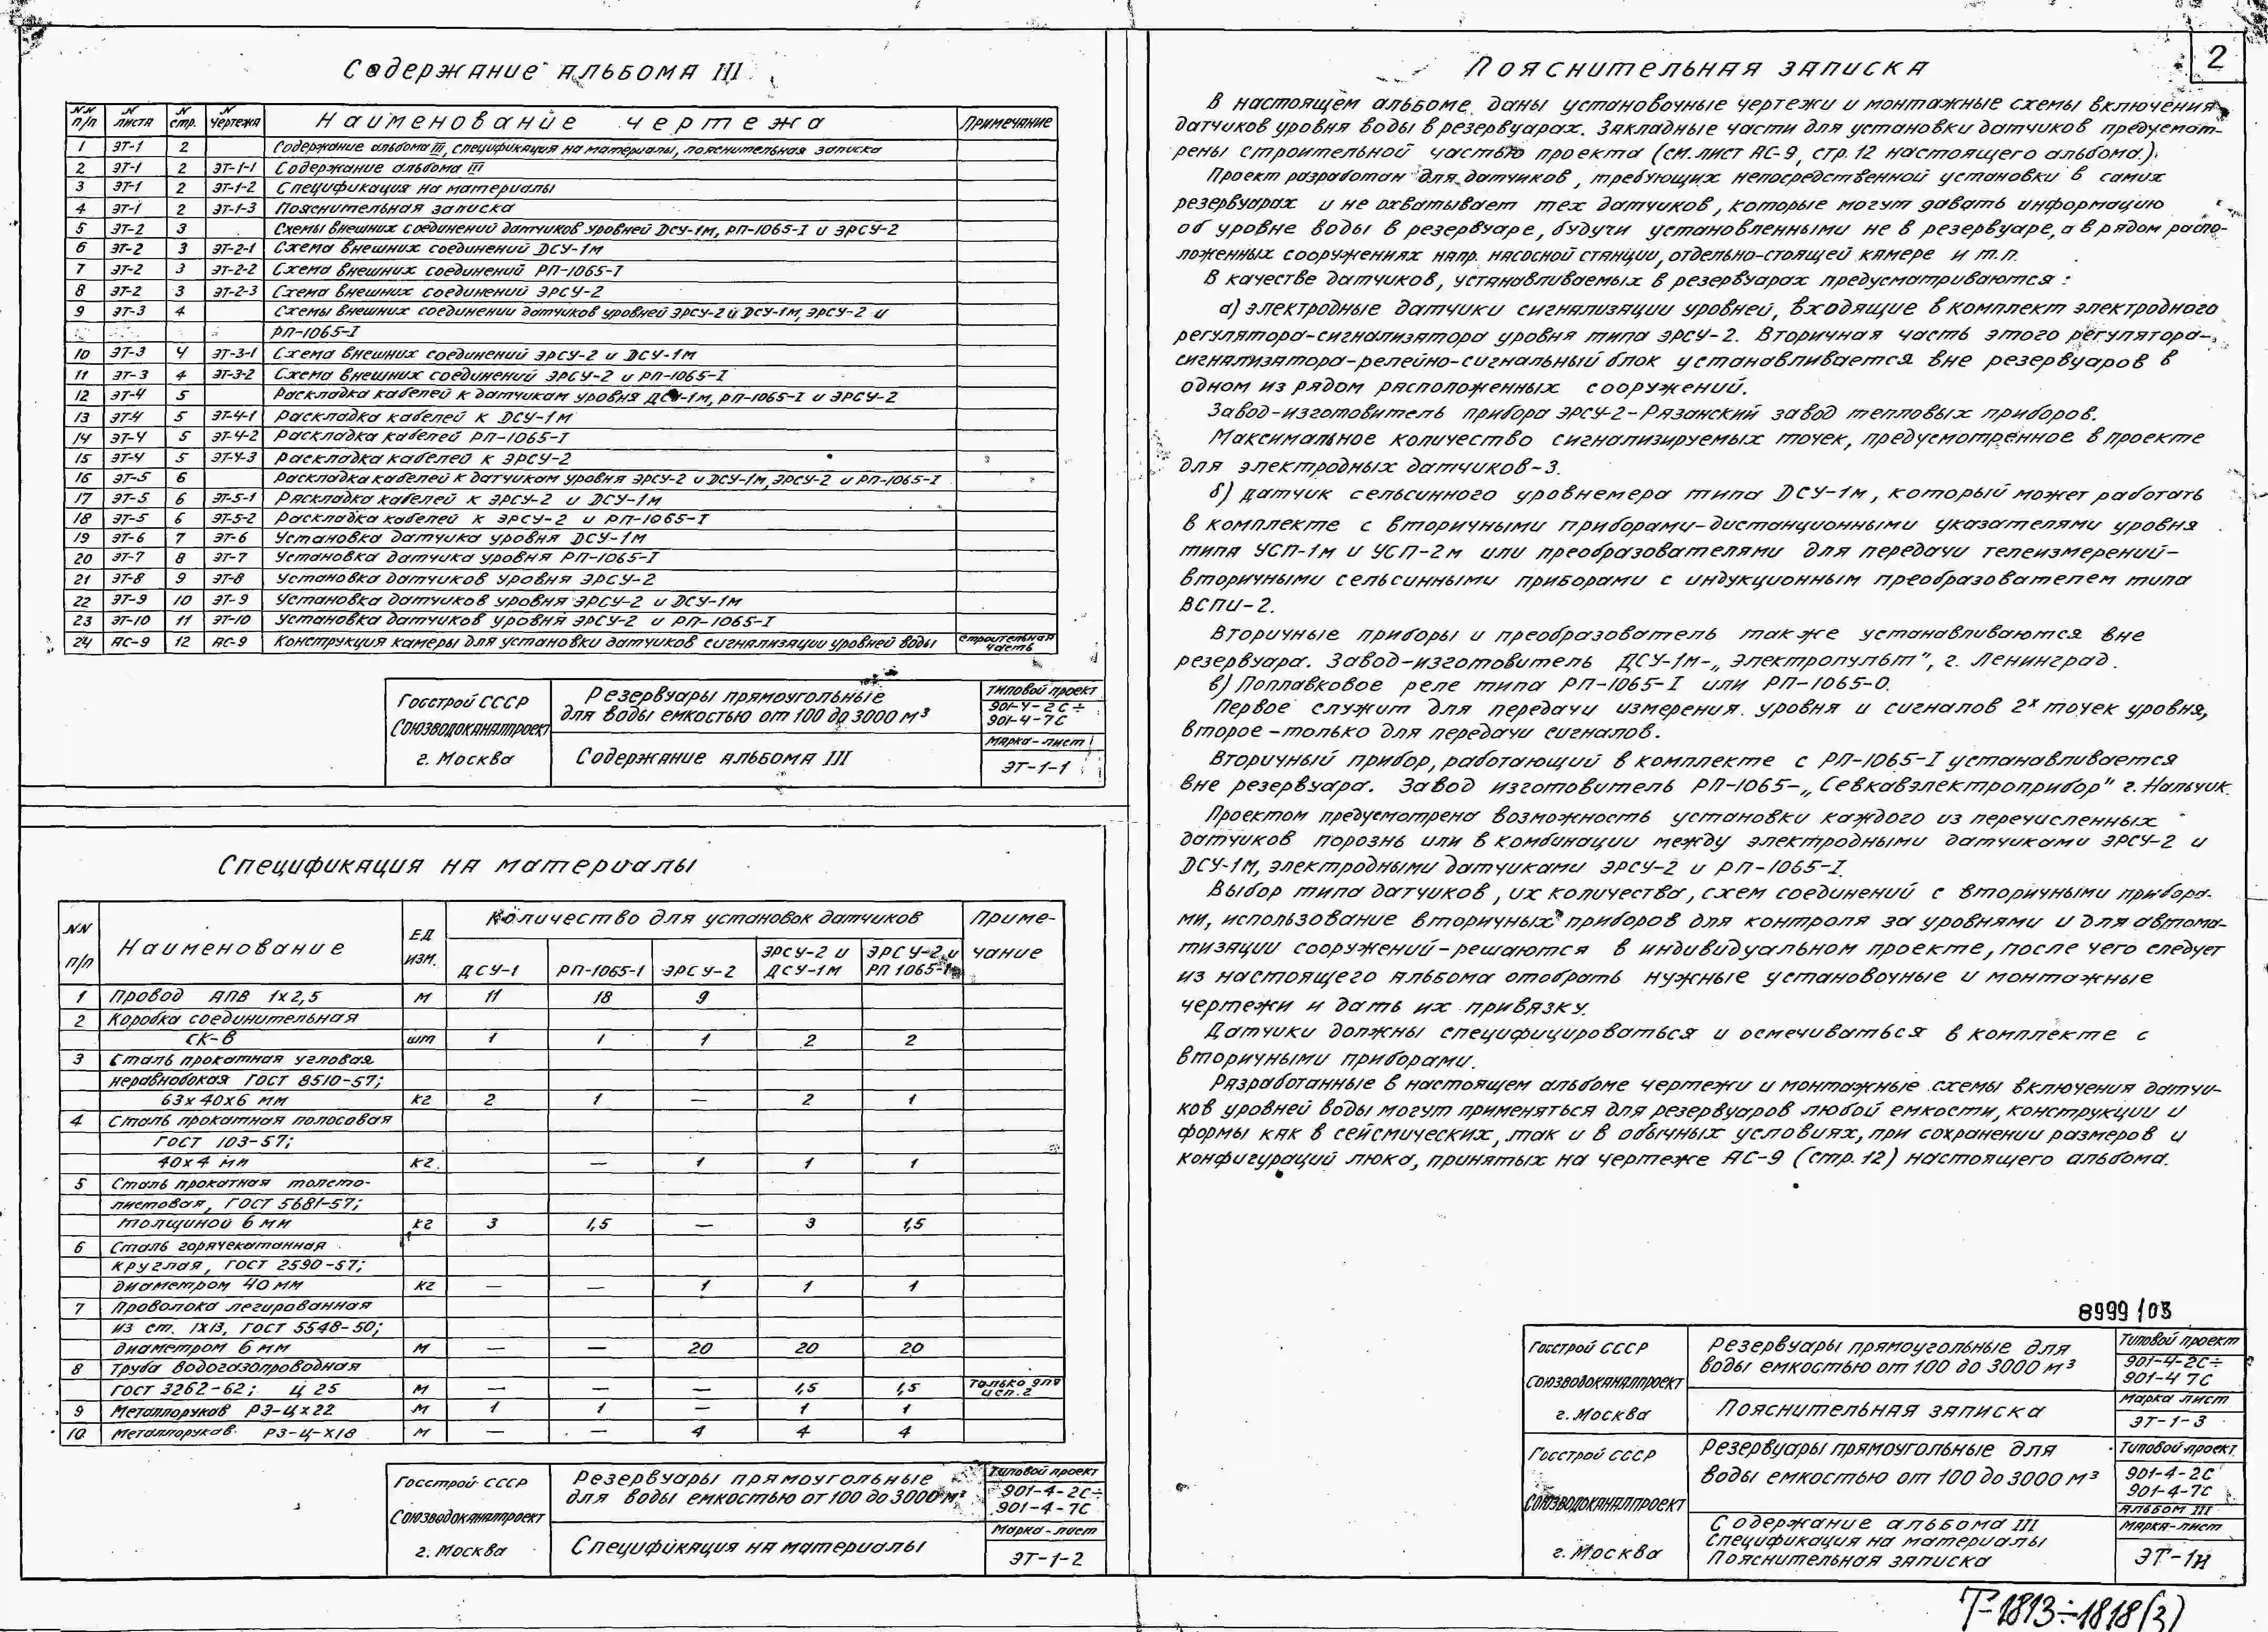 Содержание альбома III
NN п/п | N листа | N стр. | N чертежа | Наименование чертежа | Примечание
1 | ЭТ-1 | 2 | | Содержание альбома III, спецификация на материалы, пояснительная записка
2 | ЭТ-1 | 2 | ЭТ-1-1 | Содержание альбома III
3 | ЭТ-1 | 2 | ЭТ-1-2 | Спецификация на материалы
4 | ЭТ-1 | 2 | ЭТ-1-3 | Пояснительная записка
5 | ЭТ-2 | 3 | | Схемы внешних соединений датчиков уровней ДСУ-1м, РП-1065-I и ЭРСУ-2
6 | ЭТ-2 | 3 | ЭТ-2-1 | Схема внешних соединений ДСУ-1м
7 | ЭТ-2 | 3 | ЭТ-2-2 | Схема внешних соединений РП-1065-I
8 | ЭТ-2 | 3 | ЭТ-2-3 | Схема внешних соединений ЭРСУ-2
9 | ЭТ-3 | 4 | | Схемы внешних соединении датчиков уровней ЭРСУ-2 и ДСУ-1м, ЭРСУ-2 и
РП-1065-I
10 | ЭТ-3 | 4 | ЭТ-3-1 | Схема внешних соединений ЭРСУ-2 и ДСУ-1м
11 | ЭТ-3 | 4 | ЭТ-3-2 | Схема внешних соединений ЭРСУ-2 и РП-1065-I
12 | ЭТ-4 | 5 | | Раскладка кабелей к датчикам уровня ДСУ-1м, РП-1065-I и ЭРСУ-2
13 | ЭТ-4 | 5 | ЭТ-4-1 | Раскладка кабелей к ДСУ-1м
14 | ЭТ-4 | 5 | ЭТ-4-2 | Раскладка кабелей РП-1065-I
15 | ЭТ-4 | 5 | ЭТ-4-3 | Раскладка кабелей к ЭРСУ-2
16 | ЭТ-5 | 6 | | Раскладка кабелей к датчикам уровня ЭРСУ-2 и ДСУ-1м, ЭРСУ-2 и РП-1065-I
17 | ЭТ-5 | 6 | ЭТ-5-1 | Раскладка кабелей к ЭРСУ-2 и ДСУ-1м
18 | ЭТ-5 | 6 | ЭТ-5-2 | Раскладка кабелей к ЭРСУ-2 и РП-1065-I
19 | ЭТ-6 | 7 | ЭТ-6 | Установка датчика уровня ДСУ-1м
20 | ЭТ-7 | 8 | ЭТ-7 | Установка датчика уровня РП-1065-I
21 | ЭТ-8 | 9 | ЭТ-8 | Установка датчиков уровня ЭРСУ-2
22 | ЭТ-9 | 10 | ЭТ-9 | Установка датчиков уровня ЭРСУ-2 и ДСУ-1м
23 | ЭТ-10 | 11 | ЭТ-10 | Установка датчиков уровня ЭРСУ-2 и РП-1065-I
24 | АС-9 | 12 | АС-9 | Конструкция камеры для установки датчиков сигнализации уровней воды | строительная часть
Госстрой СССР
Союзводоканалпроект
г. Москва
Резервуары прямоугольные
для воды емкостью от 100 до 3000 м³
Содержание альбома III
Типовой проект
901-4-2С÷
901-4-7С
Марка-лист
ЭТ-1-1
Спецификация на материалы
NN п/п | Наименование | Ед изм. | Количество для установок датчиков | Примечание
ДСУ-1 | РП-1065-1 | ЭРСУ-2 | ЭРСУ-2 и ДСУ-1м | ЭРСУ-2 и РП 1065-1
1 | Провод АПВ 1х2,5 | м | 11 | 18 | 9
2 | Коробка соединительная
СК-6 | шт | 1 | 1 | 1 | 2 | 2
3 | Сталь прокатная угловая
неравнобокая ГОСТ 8510-57;
63х40х6 мм | кг | 2 | 1 | — | 2 | 1
4 | Сталь прокатная полосовая
ГОСТ 103-57;
40х4 мм | кг. | | — | 1 | 1 | 1
5 | Сталь прокатная толсто-
листовая, ГОСТ 5681-57;
толщиной 6 мм | кг | 3 | 1,5 | — | 3 | 1,5
6 | Сталь горячекатанная
круглая, ГОСТ 2590-57;
диаметром 40 мм | кг | — | — | 1 | 1 | 1
7 | Проволока легированная
из ст. 1Х13, ГОСТ 5548-50;
диаметром 6 мм | м | — | — | 20 | 20 | 20
8 | Труба водогазопроводная
ГОСТ 3262-62; Ц 25 | м | — | — | — | 1,5 | 1,5 | только для исп. 2
9 | Металлорукав РЗ-Цх22 | м | 1 | 1 | — | 1 | 1
10 | Металлорукав РЗ-Ц-Х18 | м | — | — | 4 | 4 | 4
Госстрой СССР
Союзводоканалпроект
г. Москва
Резервуары прямоугольные
для воды емкостью от 100 до 3000 м³
Спецификация на материалы
Типовой проект
901-4-2С÷
901-4-7С
Марка-лист
ЭТ-1-2
2
Пояснительная записка
В настоящем альбоме даны установочные чертежи и монтажные схемы включения
датчиков уровня воды в резервуарах. Закладные части для установки датчиков предусмот-
рены строительной частью проекта (см. лист АС-9, стр. 12 настоящего альбома).
Проект разработан для датчиков, требующих непосредственной установки в самих
резервуарах и не охватывает тех датчиков, которые могут давать информацию
об уровне воды в резервуаре, будучи установленными не в резервуаре, а в рядом распо-
ложенных сооружениях напр. насосной станции, отдельно-стоящей камере и т.п.
В качестве датчиков, устанавливаемых в резервуарах предусматриваются:
а) электродные датчики сигнализации уровней, входящие в комплект электродного
регулятора-сигнализатора уровня типа ЭРСУ-2. Вторичная часть этого регулятора-
сигнализатора-релейно-сигнальный блок устанавливается вне резервуаров в
одном из рядом расположенных сооружений.
Завод-изготовитель прибора ЭРСУ-2-Рязанский завод тепловых приборов.
Максимальное количество сигнализируемых точек, предусмотренное в проекте
для электродных датчиков-3.
б) датчик сельсинного уровнемера типа ДСУ-1м, который может работать
в комплекте с вторичными приборами-дистанционными указателями уровня
типа УСП-1м и УСП-2м или преобразователями для передачи телеизмерений-
вторичными сельсинными приборами с индукционным преобразователем типа
ВСПИ-2.
Вторичные приборы и преобразователь также устанавливаются вне
резервуара. Завод-изготовитель ДСУ-1м-„Электропульт", г. Ленинград.
в) Поплавковое реле типа РП-1065-I или РП-1065-0.
Первое служит для передачи измерения уровня и сигналов 2ˣ точек уровня,
второе-только для передачи сигналов.
Вторичный прибор, работающий в комплекте с РП-1065-I устанавливается
вне резервуара. Завод изготовитель РП-1065-„Севкавэлектроприбор" г. Нальчик.
Проектом предусмотрена возможность установки каждого из перечисленных
датчиков порознь или в комбинации между электродными датчиками ЭРСУ-2 и
ДСУ-1М, электродными датчиками ЭРСУ-2 и РП-1065-I.
Выбор типа датчиков, их количества, схем соединений с вторичными прибора-
ми, использование вторичных приборов для контроля за уровнями и для автома-
тизации сооружений-решаются в индивидуальном проекте, после чего следует
из настоящего альбома отобрать нужные установочные и монтажные
чертежи и дать их привязку.
Датчики должны специфицироваться и осмечиваться в комплекте с
вторичными приборами.
Разработанные в настоящем альбоме чертежи и монтажные схемы включения датчи-
ков уровней воды могут применяться для резервуаров любой емкости, конструкции и
формы как в сейсмических, так и в обычных условиях, при сохранении размеров и
конфигураций люка, принятых на чертеже АС-9 (стр. 12) настоящего альбома.
8999/03
Госстрой СССР
Союзводоканалпроект
г. Москва
Резервуары прямоугольные для
воды емкостью от 100 до 3000 м³
Пояснительная записка
Типовой проект
901-4-2С÷
901-4 7С
Марка лист
ЭТ-1-3
Госстрой СССР
Союзводоканалпроект
г. Москва
Резервуары прямоугольные для
воды емкостью от 100 до 3000 м³
Содержание альбома III
Спецификация на материалы
Пояснительная записка
Типовой проект
901-4-2С
901-4-7С
Альбом III
Марка-лист
ЭТ-1н
Т-1813÷1818(3)